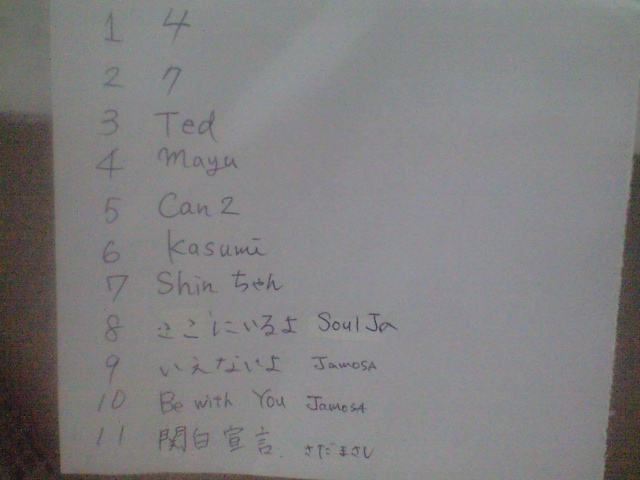 1 4
2 7
3 Ted
4 Mayu
5 Can2
6 Kasumi
7 Shinちゃん
8 ここにいるよ SoulJa
9 いえないよ JAMOSA
10 Be with You JAMOSA
11 関白宣言. さだまさし